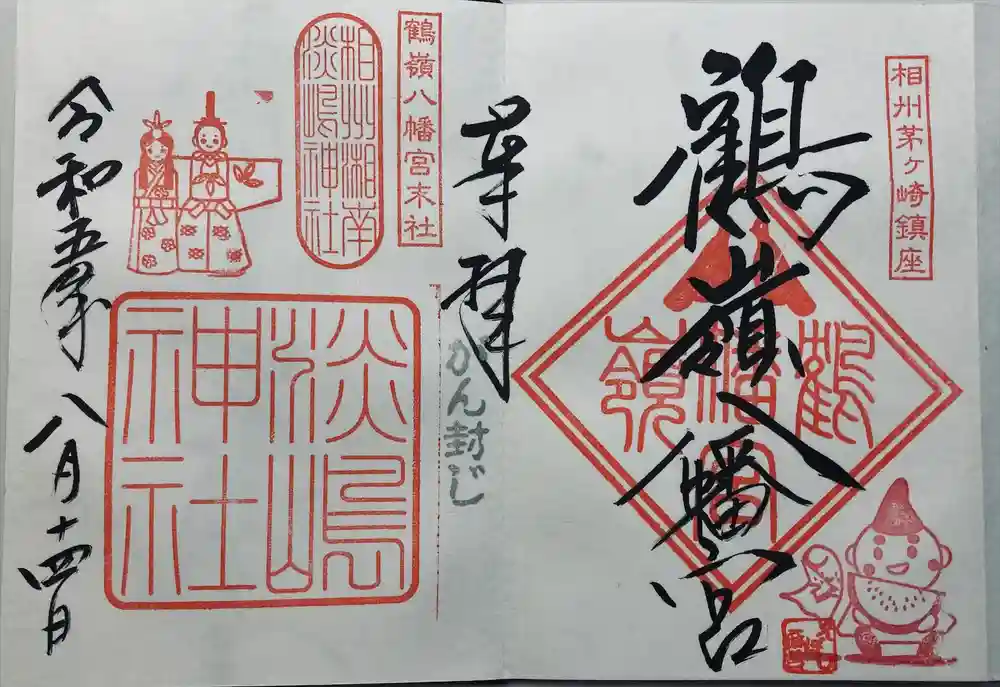 相州茅ヶ崎鎮座
鶴嶺八幡宮
鶴
八幡宮
嶺
奉拝
がん封じ
鶴嶺八幡宮末社
相州湘南
淡嶋神社
淡嶋
神社
令和五年八月十四日